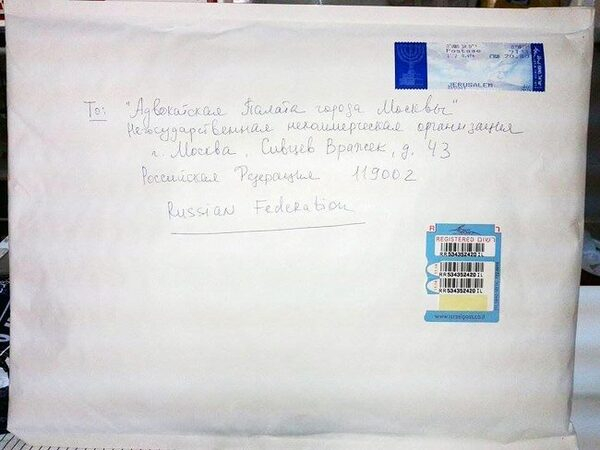 Postage
JERUSALEM
To: "Адвокатская Палата города Москвы"
Негосударственная некоммерческая организация
г. Москва, Сивцев Вражек, д. 43
Российская Федерация 119002
Russian Federation
R
REGISTERED רשום
RR534352420IL
RR534352420IL
RR534352420IL
www.israelpost.co.il